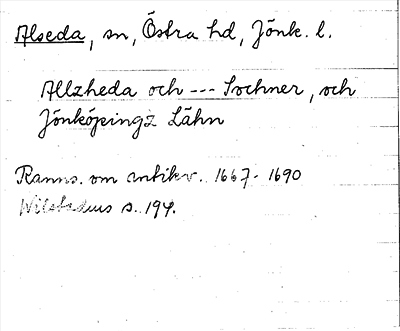 Alseda, sn, Östra hd, Jönk. l.
Allzheda och --- Sochner, och
Jönköpingz Lähn
Ranns. om antikv. 1667-1690
s. 194.